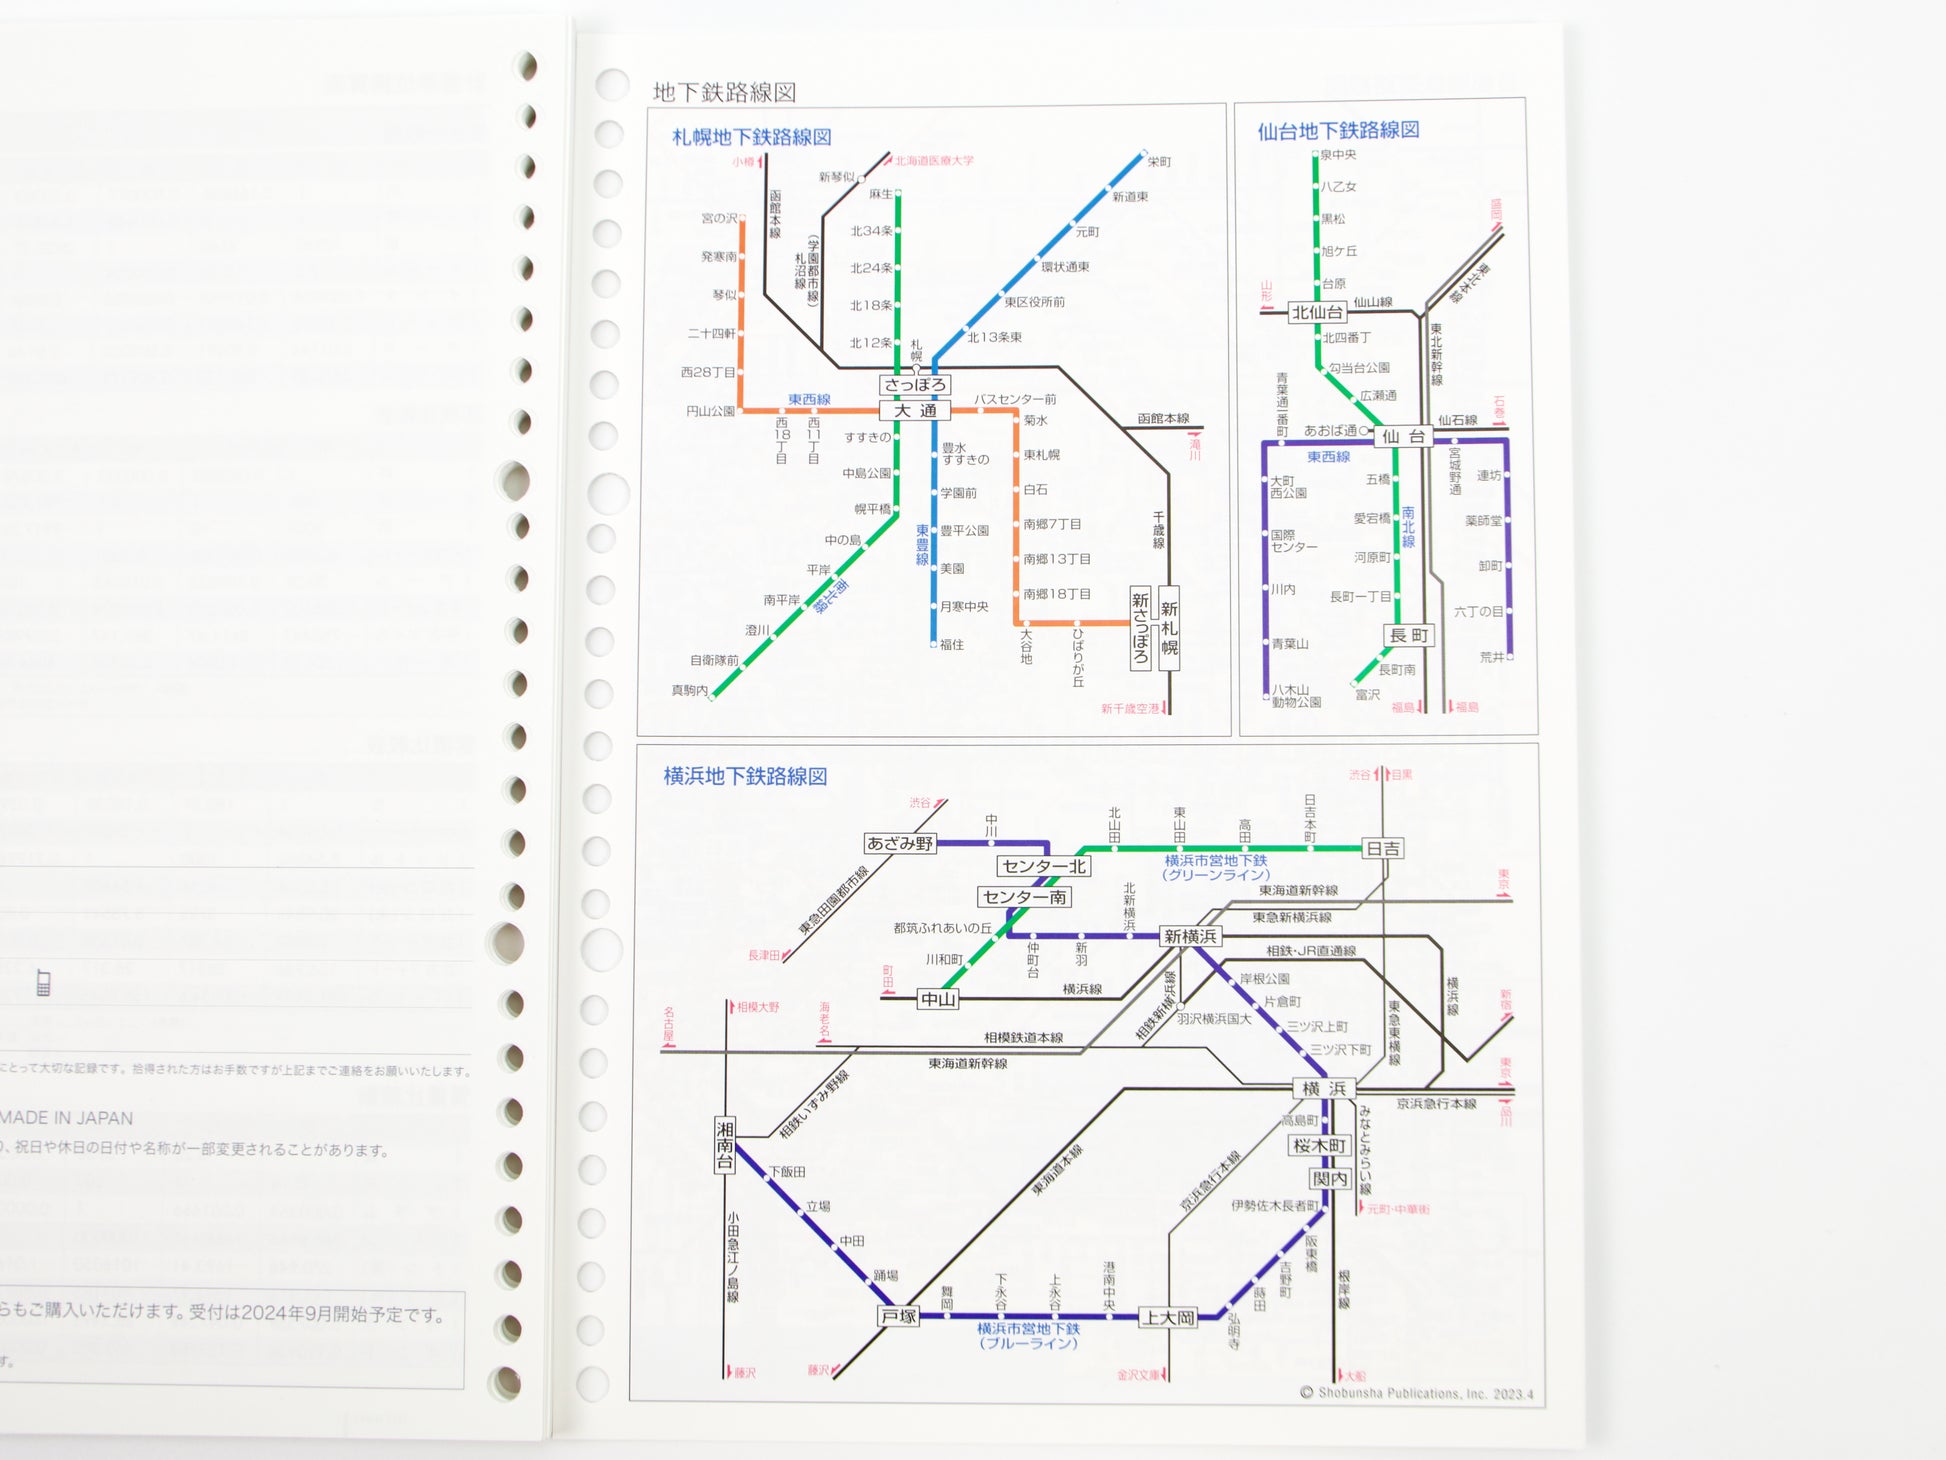 にとって大切な記録です。拾得された方はお手数ですが上記までご連絡をお願いいたします。
MADE IN JAPAN
、祝日や休日の日付や名称が一部変更されることがあります。
らもご購入いただけます。受付は2024年9月開始予定です。
す。
地下鉄路線図
札幌地下鉄路線図
小樽
函館本線
新琴似
北海道医療大学
(学園都市線)
札沼線
麻生
北34条
北24条
北18条
北12条
札幌
さっぽろ
大通
栄町
新道東
元町
環状通東
東区役所前
北13条東
宮の沢
発寒南
琴似
二十四軒
西28丁目
円山公園
東西線
西18丁目
西11丁目
バスセンター前
菊水
東札幌
白石
南郷7丁目
南郷13丁目
南郷18丁目
大谷地
ひばりが丘
新さっぽろ
新札幌
函館本線
滝川
千歳線
新千歳空港
すすきの
中島公園
幌平橋
中の島
平岸
南北線
南平岸
澄川
自衛隊前
真駒内
豊水
すすきの
学園前
東豊線
豊平公園
美園
月寒中央
福住
仙台地下鉄路線図
泉中央
八乙女
黒松
旭ケ丘
台原
山形
北仙台
仙山線
盛岡
東北本線
東北新幹線
北四番丁
勾当台公園
広瀬通
青葉通一番町
あおば通
仙台
仙石線
石巻
東西線
宮城野通
連坊
薬師堂
卸町
六丁の目
荒井
大町
西公園
国際
センター
川内
青葉山
八木山
動物公園
五橋
愛宕橋
南北線
河原町
長町一丁目
長町
長町南
富沢
福島
福島
横浜地下鉄路線図
渋谷
目黒
渋谷
あざみ野
中川
センター北
センター南
北山田
東山田
高田
日吉本町
日吉
横浜市営地下鉄
(グリーンライン)
東急田園都市線
長津田
都筑ふれあいの丘
川和町
中山
町田
仲町台
新羽
北新横浜
新横浜
東海道新幹線
東京
東急新横浜線
相鉄・JR直通線
横浜線
横浜線
相鉄新横浜線
羽沢横浜国大
岸根公園
片倉町
三ツ沢上町
三ツ沢下町
東急東横線
新宿
東京
名古屋
相模大野
海老名
相模鉄道本線
東海道新幹線
相鉄いずみ野線
横浜
京浜急行本線
品川
高島町
桜木町
関内
みなとみらい線
元町・中華街
伊勢佐木長者町
阪東橋
吉野町
蒔田
弘明寺
根岸線
大船
京浜急行本線
東海道本線
湘南台
下飯田
立場
中田
踊場
小田急江ノ島線
戸塚
舞岡
下永谷
上永谷
港南中央
上大岡
横浜市営地下鉄
(ブルーライン)
藤沢
藤沢
金沢文庫
© Shobunsha Publications, Inc. 2023.4